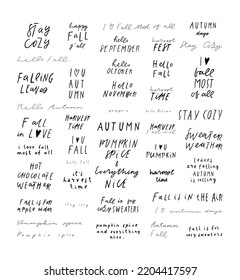 STAY
COZY
happy
FALL
y'all
I ♥ Fall Most of all
AUTUMN
days
hello
SEPTEMBER
harvest
FEST
Stay Cozy
hello fall
FALLING
LEAVES
I ♥ U
AUT
UMN
hello
OCTOBER
Hello
NOVEMBER
HARVEST
TIME
I ♥
fall
MOST
of all
Hello Autumn
pumpkin
Fall
in
LOVE
HARVEST
TIME
AUTUMN
STAY COZY
i love fall
most of all
hello fall
PUMPKIN
SPICE
&
EVERYTHING
NICE
I ♥ U
PUMPKIN
SWEATER
WEATHER
HOT
CHOCOLATE
WEATHER
it's
harvest
time
harvest
time
leaves
are falling
AUTUMN
is calling
Fall is for
apple cider
stay cozy
Fall is for
SWEATERS
FALL IS IN THE AIR
I ♥ autumn days
Pumpkin spice
Pumpkin spice
pumpkin spice
and everything
nice.
Autumn
Fall
fall is for
cozy sweaters
shutterstock.com · 2204417597